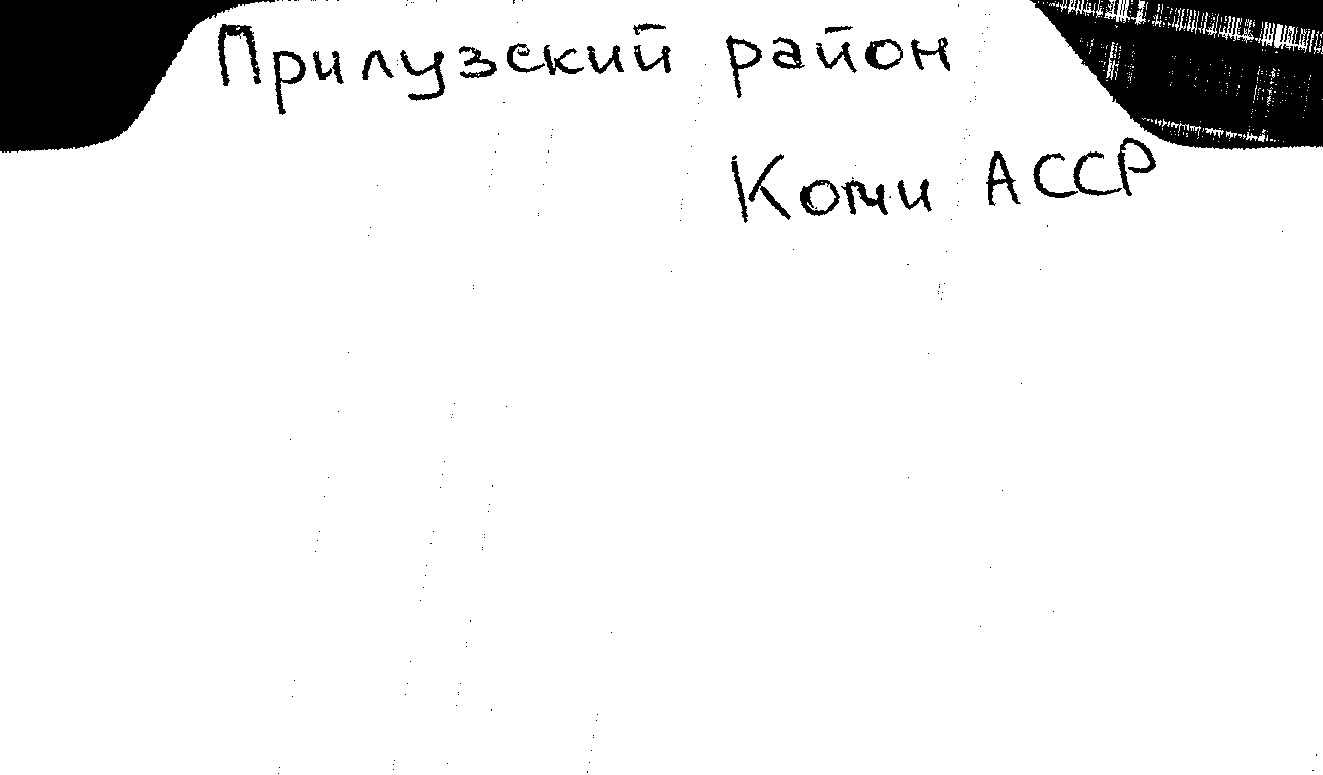 Прилузский район
Коми АССР